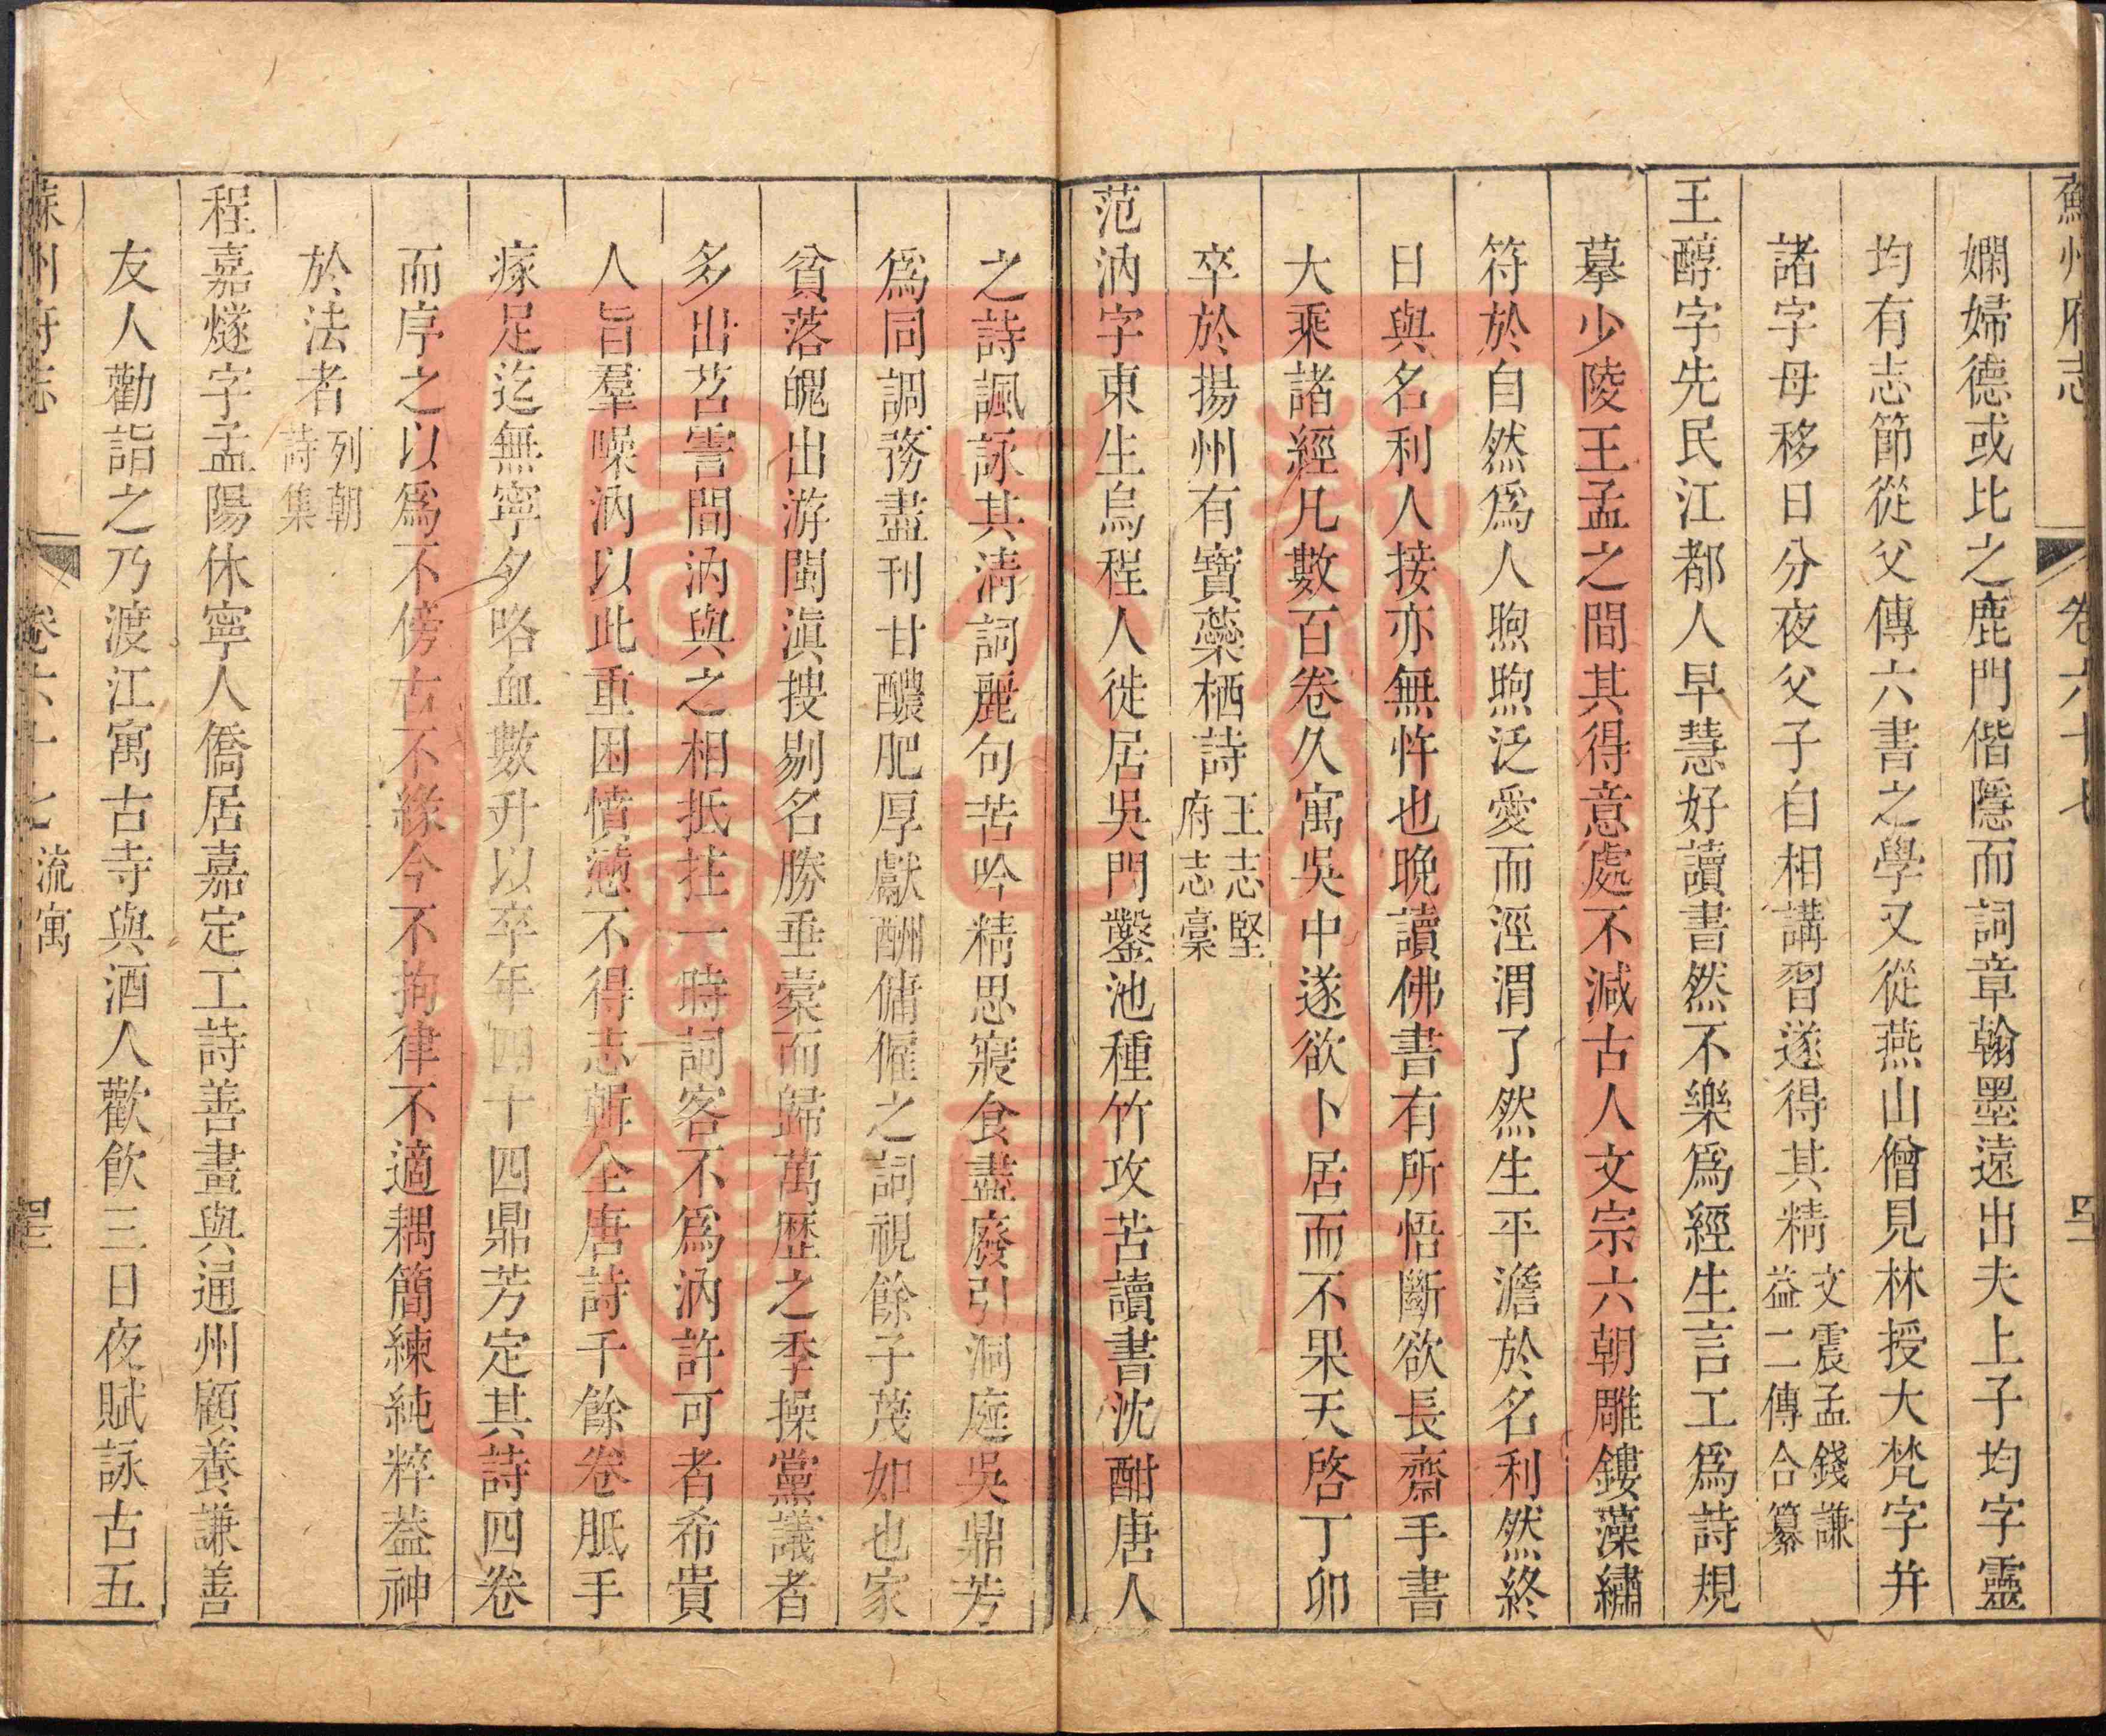 蘇州府志 卷六十七
嫻婦德或比之鹿門偕隱而詞章翰墨遠出夫上子均字靈
均有志節從父傳六書之學又從燕山僧見林授大梵字并
諸字母移日分夜父子自相講習遂得其精文震孟錢謙益二傳合纂
王醇字先民江都人早慧好讀書然不樂為經生言工為詩規
摹少陵王孟之間其得意處不減古人文宗六朝雕鏤藻繡
符於自然為人煦煦泛愛而涇渭了然生平澹於名利然終
日與名利人接亦無忤也晚讀佛書有所悟斷欲長齋手書
大乘諸經凡數百卷久寓吳中遂欲卜居而不果天啓丁卯
卒於揚州有寶蘂栖詩王志堅府志稾
范汭字東生烏程人徙居吳門鑿池種竹攻苦讀書沈酣唐人
之詩諷詠其清詞麗句苦吟精思寢食盡廢引洞庭吳鼎芳
為同調務盡刊甘醲肥厚獻酬傭僱之詞視餘子蔑如也家
貧落魄出游閩滇搜剔名勝垂橐而歸萬歷之季操黨議者
多出苕霅間汭與之相抵拄一時詞客不為汭許可者希貴
人旨羣噪汭以此重困憤懣不得志輯全唐詩千餘卷胝手
瘃足迄無寧夕咯血數升以卒年四十四鼎芳定其詩四卷
而序之以為不傍古不緣今不拘律不適耦簡練純粹葢神
於法者列朝詩集
程嘉燧字孟陽休寧人僑居嘉定工詩善畫與通州顧養謙善
友人勸詣之乃渡江寓古寺與酒人歡飲三日夜賦詠古五
蘇州府志 卷六十七 流寓